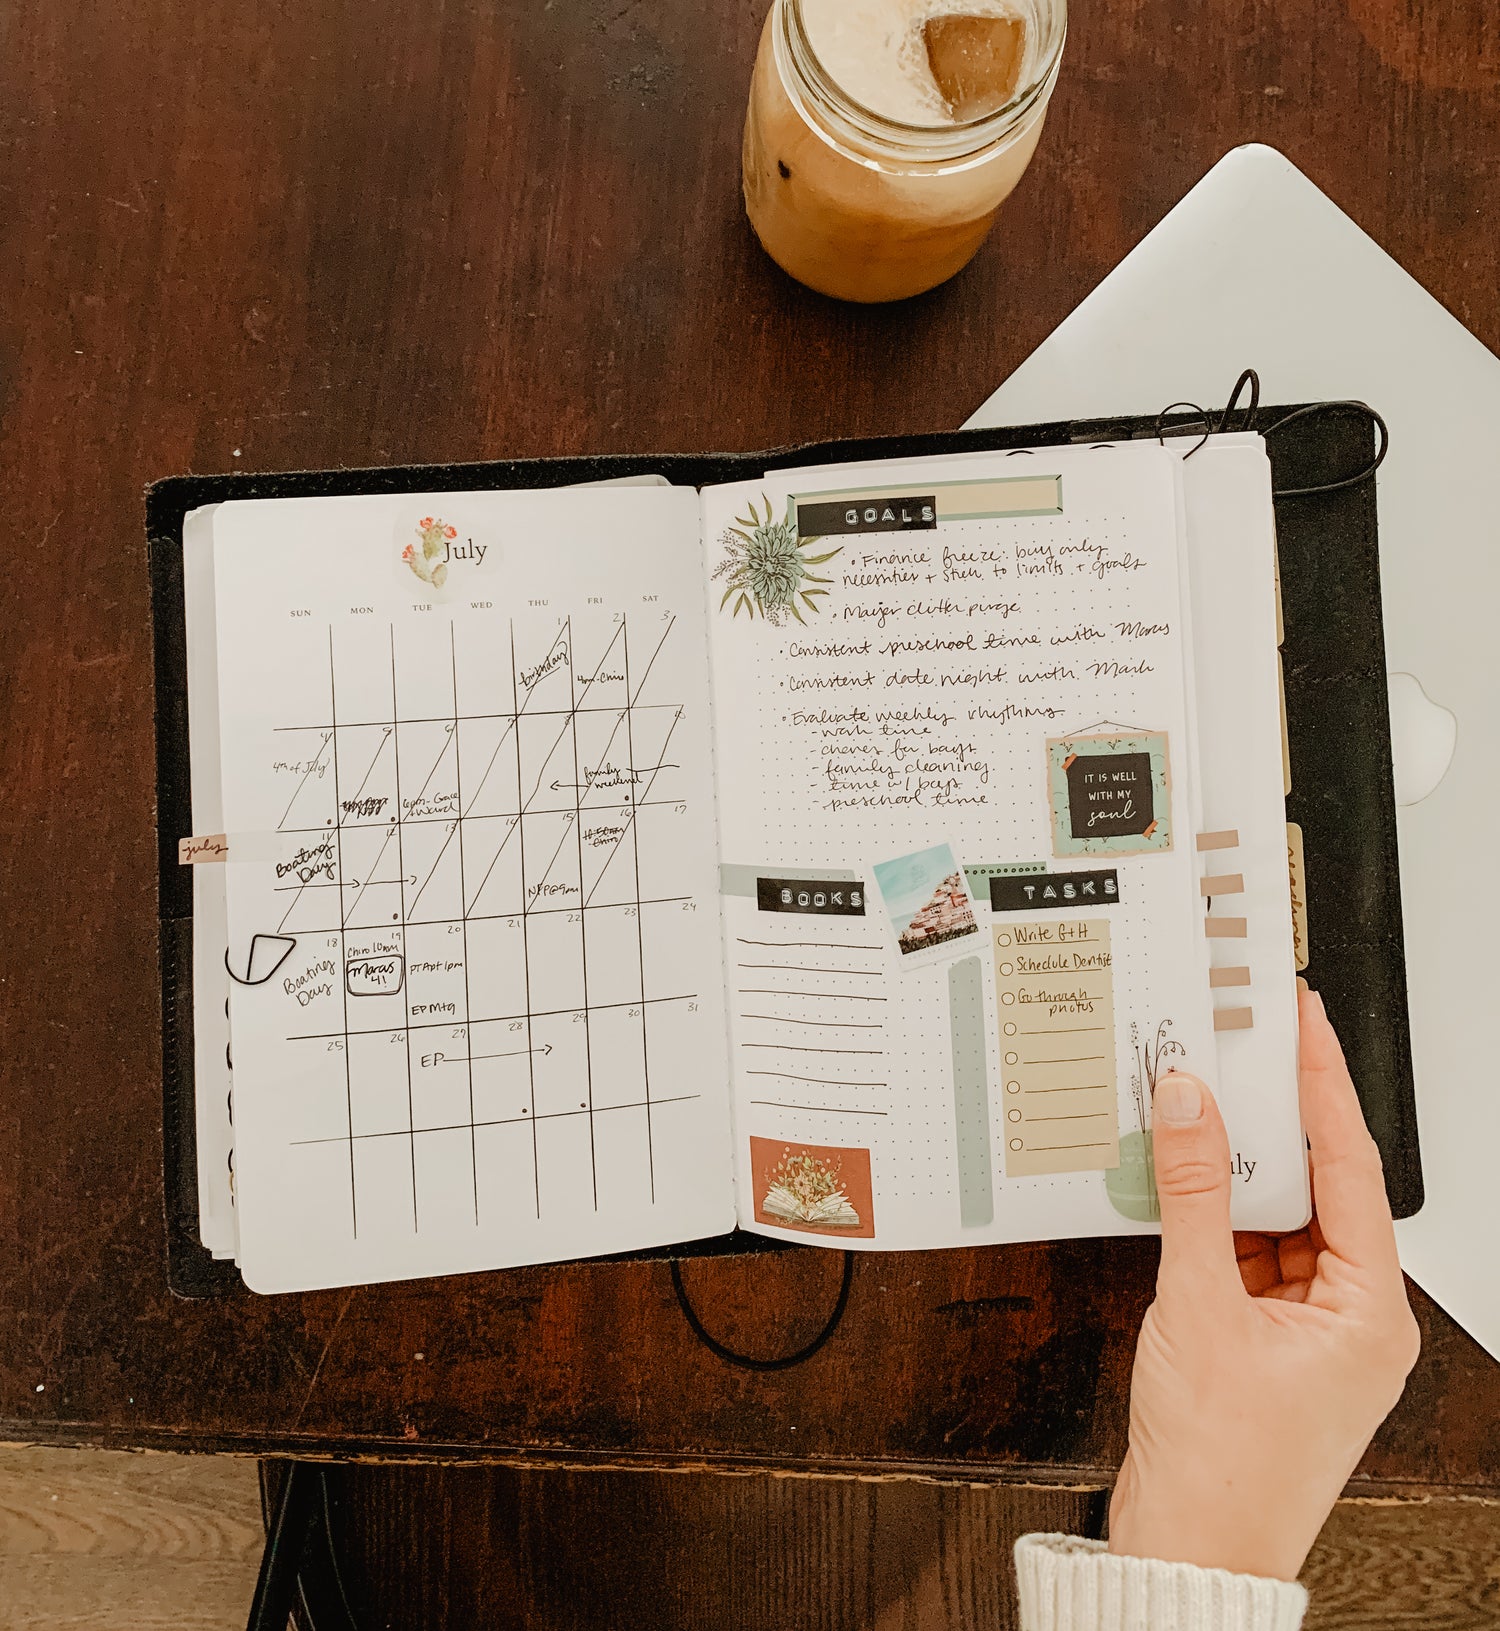 July
SUN MON TUE WED THU FRI SAT
1 2 3
birthday
4pm-Chiro
4 5 6 7 8 9 10
4th of July!
6pm-Grace
+ Ward
family
weekend
11 12 13 14 15 16 17
Boating
Day
NFP@9am
10:50am
Chiro
18 19 20 21 22 23 24
Boating
Day
Chiro 10am
Marcus
4!
PT Apt 1pm
EP Mtg
25 26 27 28 29 30 31
EP
july
GOALS
• Finance freeze: buy only
necessities + stick to limits + goals
• Major clutter purge
• Consistent preschool time with Marcus
• Consistent date night with Mark
• Evaluate weekly rhythms
- work time
- chores for boys
- family cleaning
- time w/ boys
- preschool time
IT IS WELL
WITH MY
soul
BOOKS
TASKS
Write G+H
Schedule Dentist
Go through
photos
uly